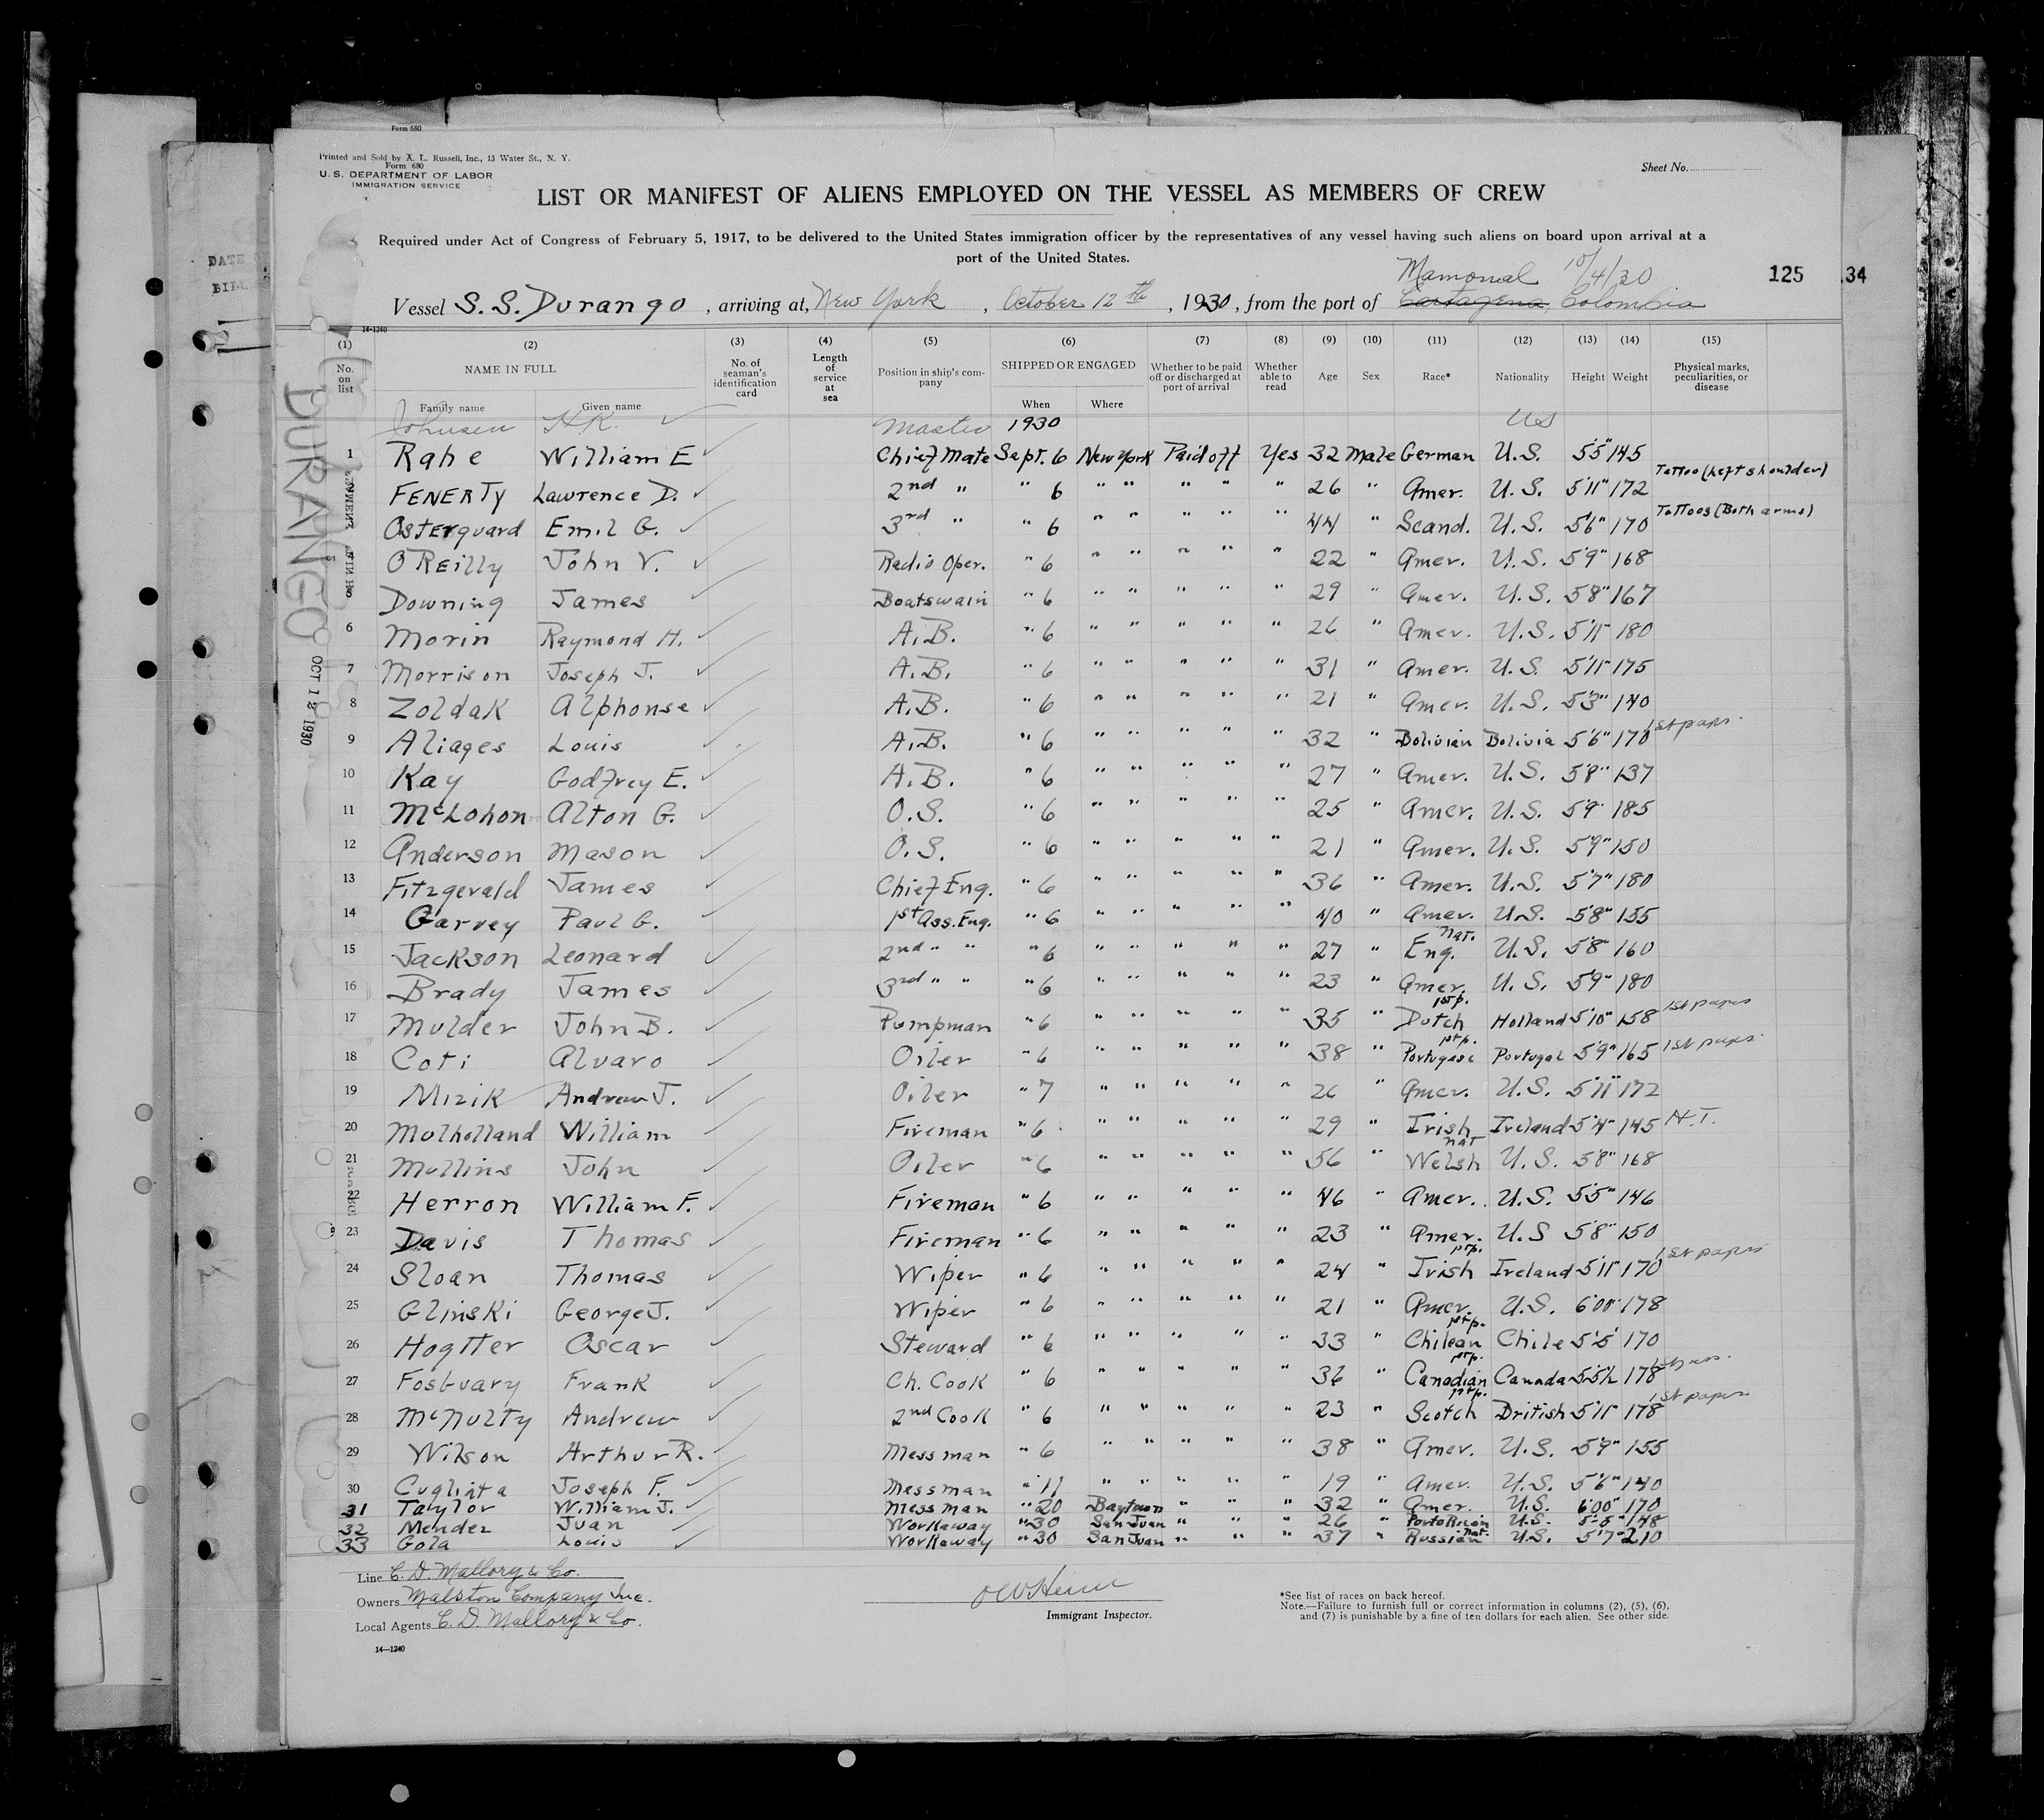 Form 680
Printed and Sold by A. L. Russell, Inc., 13 Water St., N. Y.
Form 680
U. S. DEPARTMENT OF LABOR
IMMIGRATION SERVICE
Sheet No.
LIST OR MANIFEST OF ALIENS EMPLOYED ON THE VESSEL AS MEMBERS OF CREW
Required under Act of Congress of February 5, 1917, to be delivered to the United States immigration officer by the representatives of any vessel having such aliens on board upon arrival at a
port of the United States.
Mamonal 10/4/30
125 34
Vessel S.S. Durango, arriving at, New York, October 12th, 1930, from the port of Cartagena, Colombia
14-1240
(1) (2) (3) (4) (5) (6) (7) (8) (9) (10) (11) (12) (13) (14) (15)
No. on list NAME IN FULL No. of seaman's identification card Length of service at sea Position in ship's company SHIPPED OR ENGAGED Whether to be paid off or discharged at port of arrival Whether able to read Age Sex Race* Nationality Height Weight Physical marks, peculiarities, or disease
Family name Given name When Where
Johnsen H.R. Master 1930 US
1 Rahe William E Chief Mate Sept. 6 New York Paid off Yes 32 Male German U.S. 5'5" 145
FENERTY Lawrence D. 2nd " " 6 " " " " " 26 " Amer. U.S. 5'11" 172 Tattoo (Left shoulder)
Osterguard Emil G. 3rd " " 6 " " " " " 44 " Scand. U.S. 5'6" 170 Tattoos (Both arms)
O'Reilly John V. Radio Oper. " 6 " " " " " 22 " Amer. U.S. 5'9" 168
Downing James Boatswain " 6 " " " " " 29 " Amer. U.S. 5'8" 167
6 Morin Raymond H. A.B. " 6 " " " " " 26 " Amer. U.S. 5'11" 180
7 Morrison Joseph J. A.B. " 6 " " " " " 31 " Amer. U.S. 5'11" 175
8 Zoldak Alphonse A.B. " 6 " " " " " 21 " Amer. U.S. 5'3" 140
9 Aliages Louis A.B. " 6 " " " " " 32 " Bolivian Bolivia 5'6" 170 1st papr.
10 Kay Godfrey E. A.B. " 6 " " " " " 27 " Amer. U.S. 5'8" 137
11 McLohon Alton G. O.S. " 6 " " " " " 25 " Amer. U.S. 5'9" 185
12 Anderson Mason O.S. " 6 " " " " " 21 " Amer. U.S. 5'9" 150
13 Fitzgerald James Chief Eng. " 6 " " " " " 36 " Amer. U.S. 5'7" 180
14 Garvey Paul G. 1st Ass. Eng. " 6 " " " " " 40 " Amer. U.S. 5'8" 155
15 Jackson Leonard 2nd " " " 6 " " " " " 27 " Eng. nat. U.S. 5'8" 160
16 Brady James 3rd " " " 6 " " " " " 23 " Amer. U.S. 5'9" 180
17 Mulder John B. Pumpman " 6 " " " " " 35 " 1st p. Dutch Holland 5'10" 158 1st papers
18 Coti Alvaro Oiler " 6 " " " " " 38 " 1st p. Portugese Portugal 5'9" 165 1st papers
19 Mizik Andrew J. Oiler " 7 " " " " " 26 " Amer. U.S. 5'11" 172
20 Mulholland William Fireman " 6 " " " " " 29 " Irish Ireland 5'4" 145 H.T.
21 Mullins John Oiler " 6 " " " " " 56 " nat Welsh U.S. 5'8" 168
22 Herron William F. Fireman " 6 " " " " " 46 " Amer. U.S. 5'5" 146
23 Davis Thomas Fireman " 6 " " " " " 23 " Amer. U.S 5'8" 150
24 Sloan Thomas Wiper " 6 " " " " " 24 " 1st p. Irish Ireland 5'11" 170 1st papers
25 Glinski George J. Wiper " 6 " " " " " 21 " Amer. U.S. 6'00" 178
26 Hogtter Oscar Steward " 6 " " " " " 33 " 1st p. Chilean Chile 5'5" 170
27 Fosbuary Frank Ch. Cook " 6 " " " " " 36 " 1st p. Canadian Canada 5'5½ 178
28 McNulty Andrew 2nd Cook " 6 " " " " " 23 " 1st p. Scotch British 5'11" 178 1st papers
29 Wilson Arthur R. Messman " 6 " " " " " 38 " Amer. U.S. 5'9" 155
30 Cuglinta Joseph F. Messman " 11 " " " " " 19 " Amer. U.S. 5'6" 140
31 Taylor William J. Messman " 20 Baytown " " " 32 " Amer. U.S. 6'00" 170
32 Mendez Juan Workaway " 30 San Juan " " " 26 " Porto Rican U.S. 5'5" 148
33 Gola Louis Workaway " 30 San Juan " " " 37 " Russian nat. U.S. 5'7" 210
DURANGO
OCT 12 1930
Line C. D. Mallory & Co.
Owners Malston Company Inc.
Local Agents C. D. Mallory & Co.
Immigrant Inspector.
*See list of races on back hereof.
Note.—Failure to furnish full or correct information in columns (2), (5), (6),
and (7) is punishable by a fine of ten dollars for each alien. See other side.
14—1240